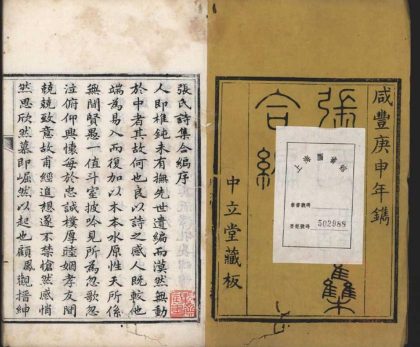 咸豐庚申年鐫
張
集
合編
中立堂藏板
登記號碼 502988
張氏詩集合編序
人即椎鈍未有撫先世遺編而漠然無動
於中者其故何也良以詩之感人既較他
端為易入而復加以木本水原性天所係
無間賢愚一值斗室披吟見所為忽歌忽
泣俯仰興懷每於忠誠樸厚睦姻孝友間
兢兢致意故甫經追想遂不禁愴然感悄
然思欣然慕即崛然以起也顧鳳觀搢紳